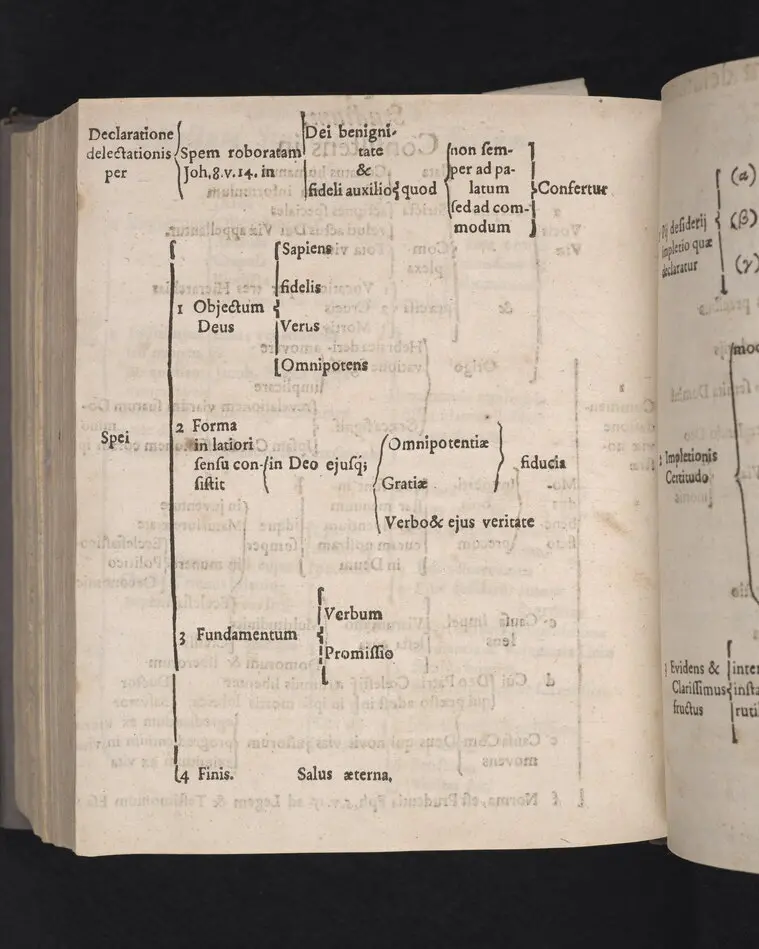 Declaratione delectationis per
Spem roboratam Joh, 8. v. 14. in
Dei benigni-
tate
&
fideli auxilio quod
non sem-
per ad pa-
latum
sed ad com-
modum
Confertur
Spei
1 Objectum
Deus
Sapiens
fidelis
Verus
Omnipotens
2 Forma
in latiori
sensu con-
sistit
in Deo ejusq;
Omnipotentiæ
Gratiæ
fiducia
Verbo & ejus veritate
3 Fundamentum
Verbum
Promissio
4 Finis.
Salus æterna,
(α)
desiderij
(β)
Impletio quæ
declaratur
(γ)
Impletionis
Certitudo
Evidens &
Clarissimus
fructus